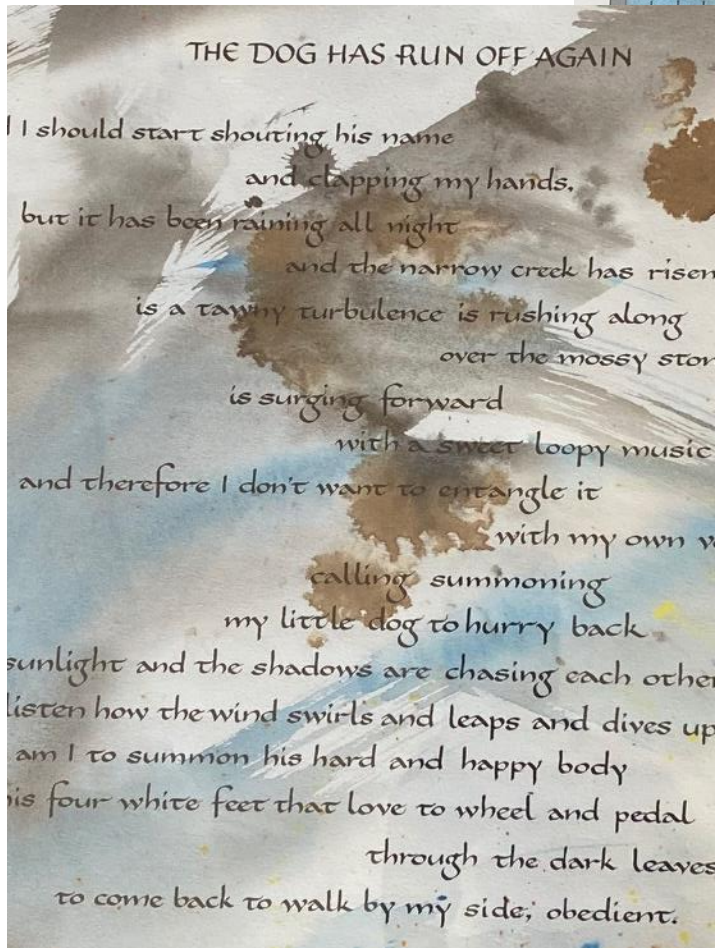 THE DOG HAS RUN OFF AGAIN
I should start shouting his name
and clapping my hands,
but it has been raining all night
and the narrow creek has risen
is a tawny turbulence is rushing along
over the mossy
is surging forward
with a sweet loopy music
and therefore I don't want to entangle it
with my own
calling summoning
my little dog to hurry back
sunlight and the shadows are chasing each other
listen how the wind swirls and leaps and dives up
am I to summon his hard and happy body
four white feet that love to wheel and pedal
through the dark leaves
to come back to walk by my side, obedient.